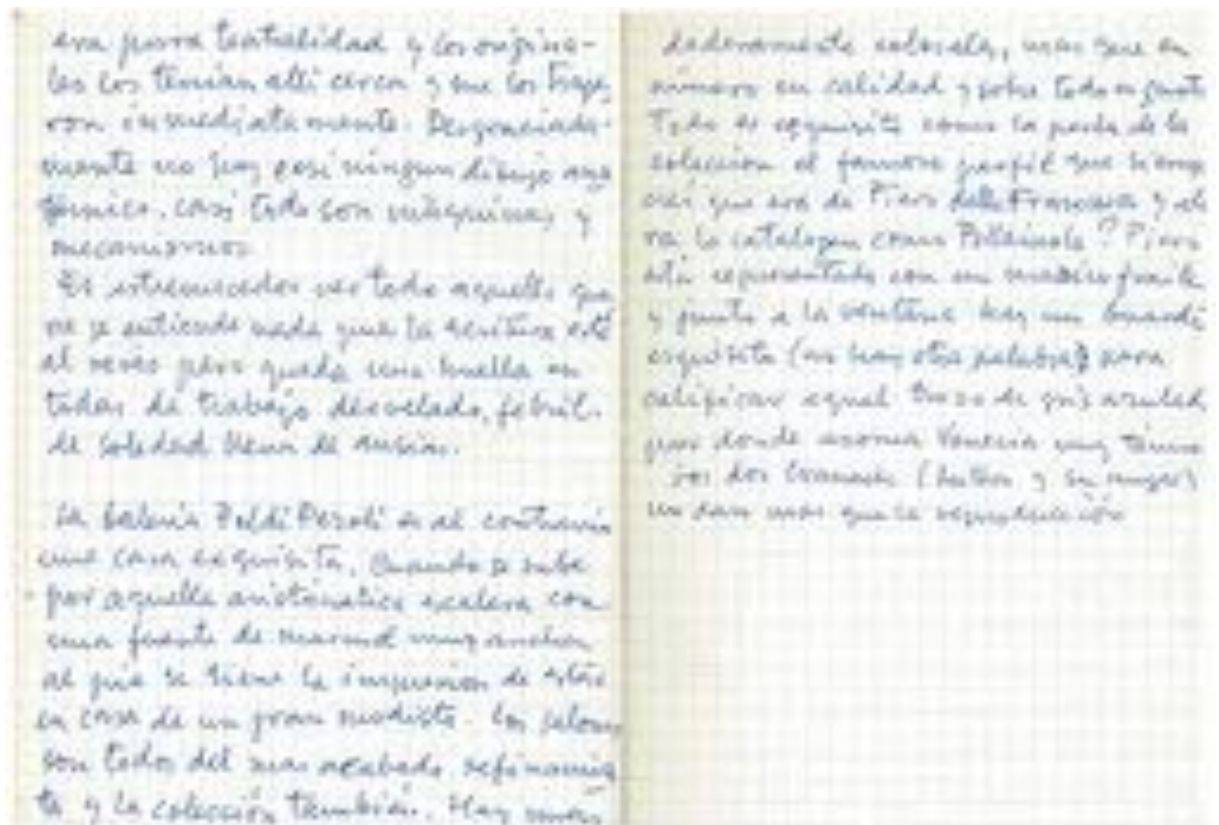 era pura teatralidad y los origina-
les los tenían allí cerca y me los traje-
ron inmediatamente. Desgraciada-
mente no hay casi ningun dibujo ana
tómico. casi todo son máquinas y
mecanismos.
Es estremecedor ver todo aquello que
no se entiende nada que la escritura está
al revés pero queda una huella en
todas de trabajo desvelado, febril.
de soledad llena de ansias.
La Galería Poldi Pezoli es al contrario
una casa exquisita. Cuando se sube
por aquella aristocratica escalera con
una fuente de marmol muy ancha
al pie se tiene la impresion de estar
en casa de un gran modisto. Los salones
son todos del mas acabado refinamien
to y la colección también. Hay
dederamente, mas que en
número en calidad y sobre todo en gusto
Todo es exquisito como la perla de la
coleccion el famoso perfil que siempre
creí que era de Piero della Francesca y aho
ra lo catalogan como Pollaiuolo? Piero
está representado con un fraile
y junto a la ventana hay un Guardi
exquisito (no hay otra palabra) para
calificar aquel trozo de gris azulado
por donde asoma Venecia muy
Los dos Cranach (Luthero y su mujer)
no dan mas que la reproducción